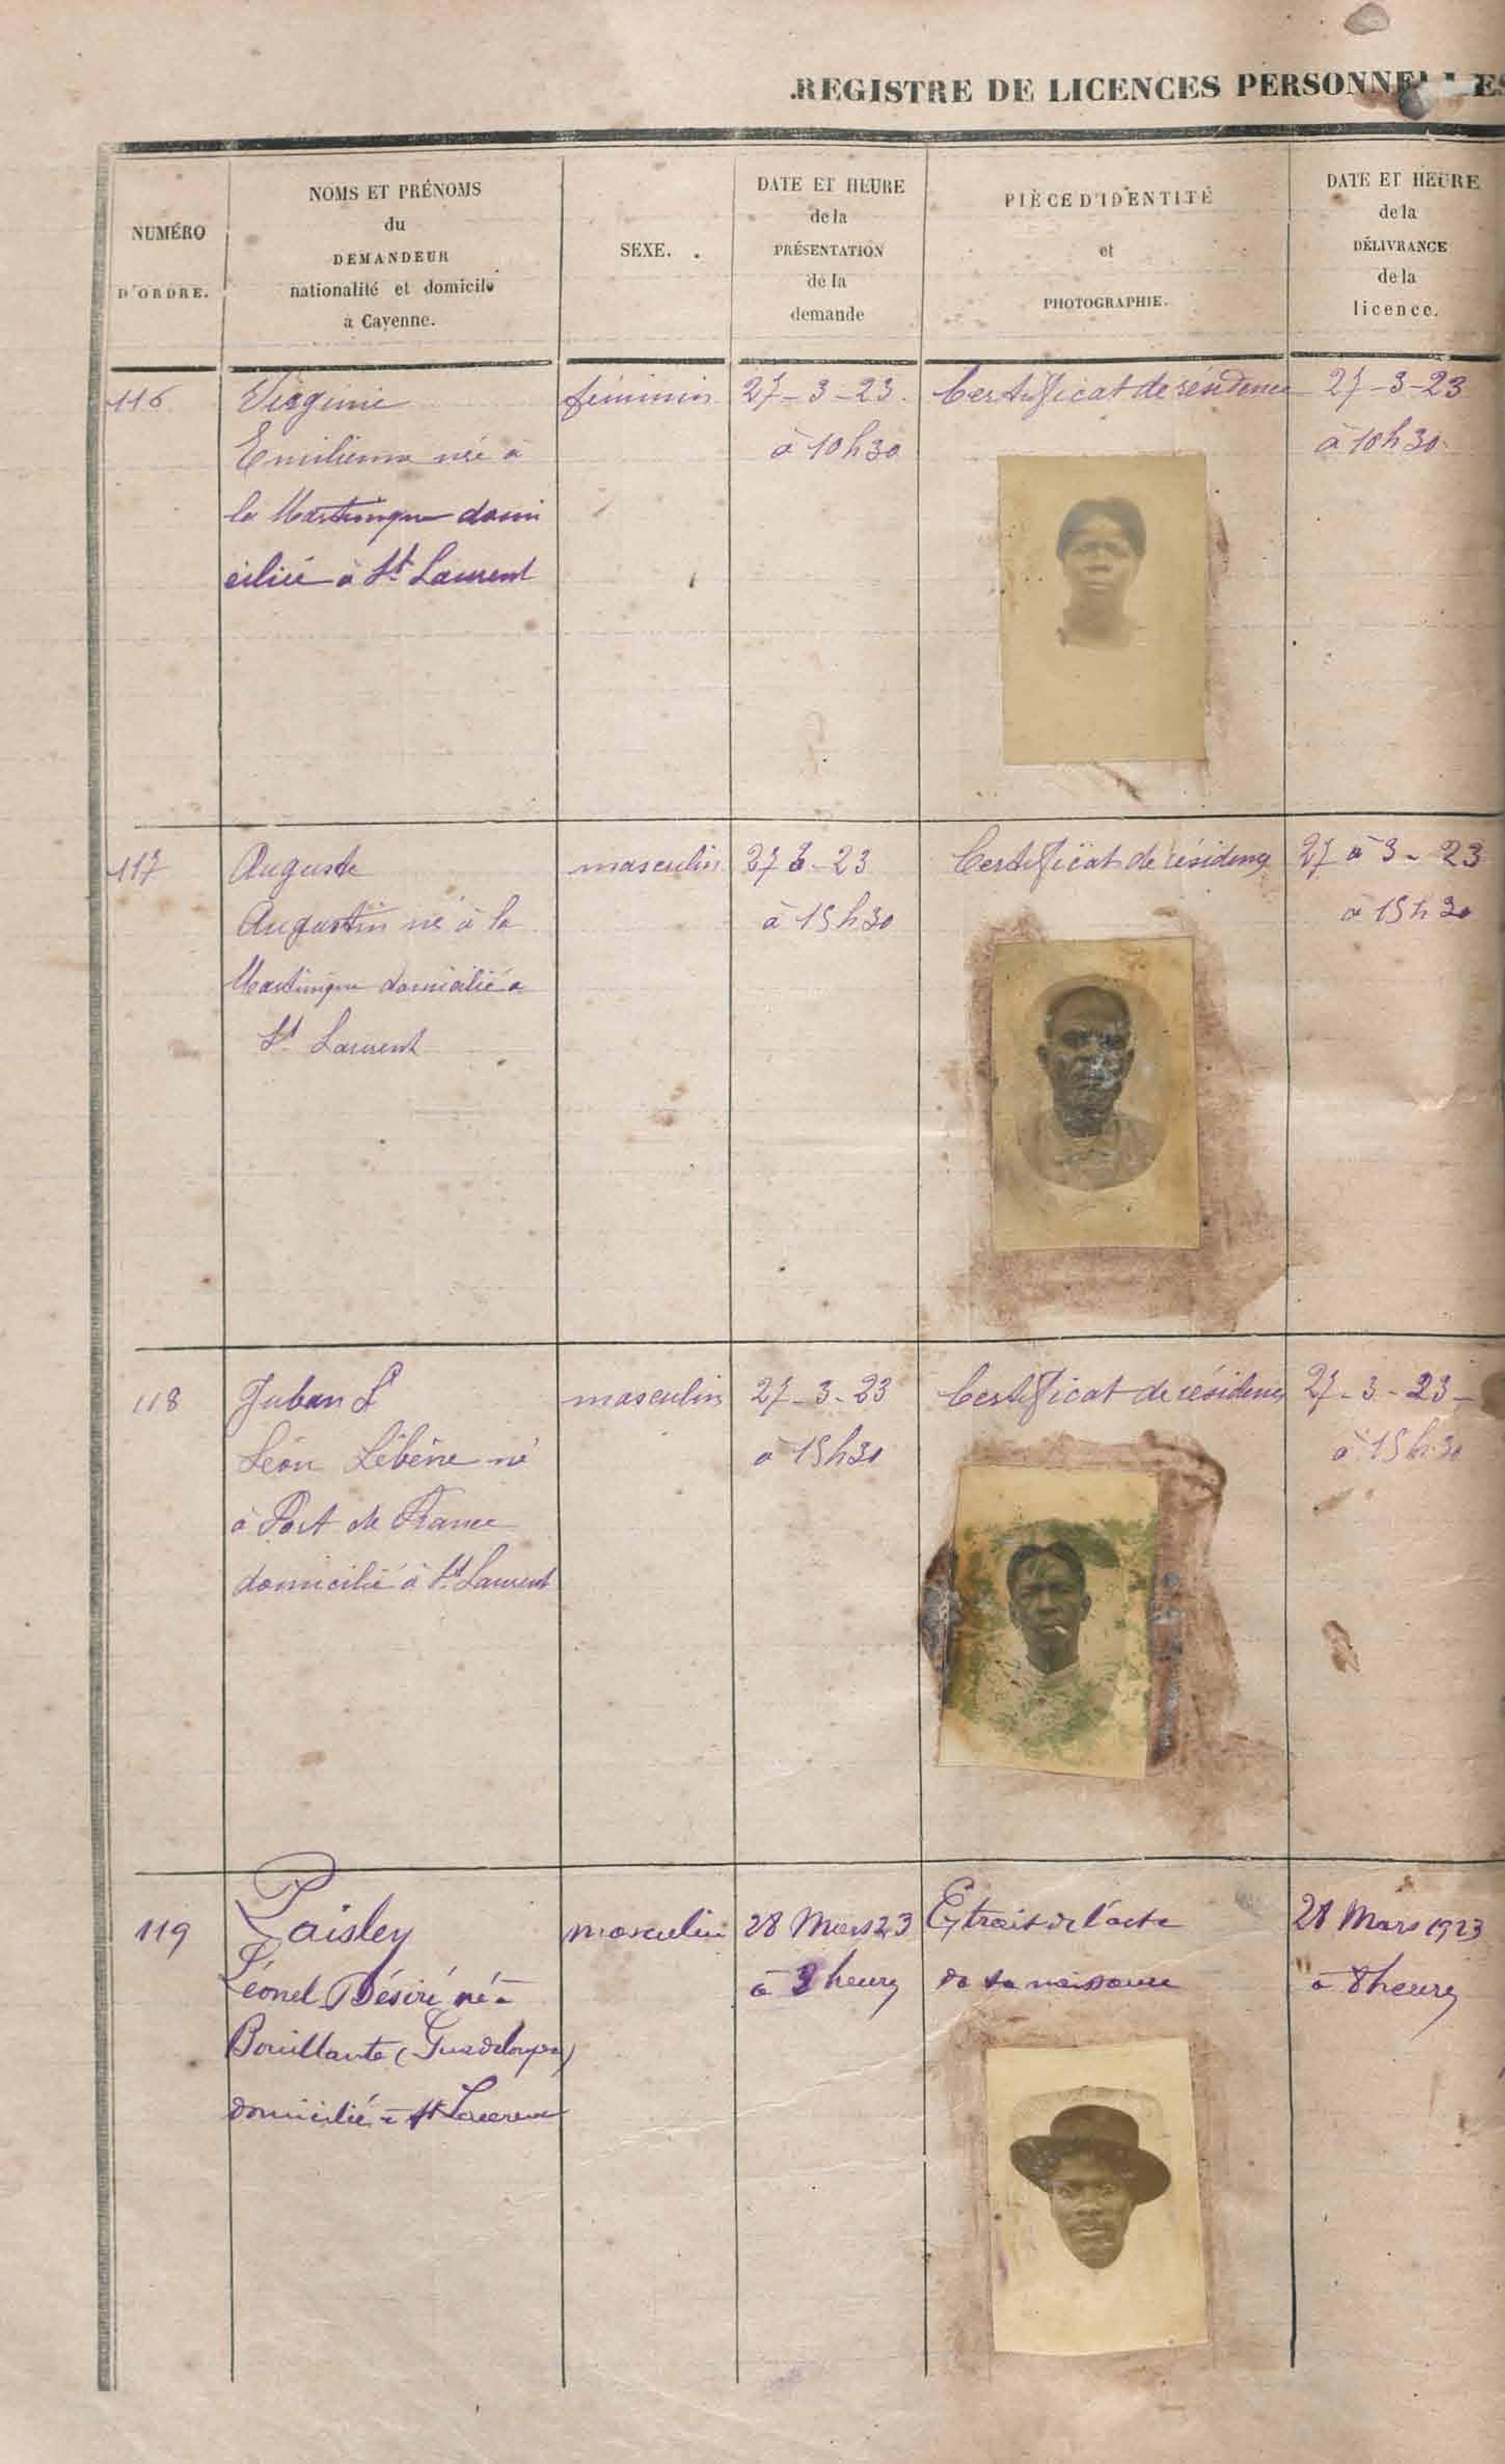 REGISTRE DE LICENCES PERSONNELLES
NUMÉRO
D'ORDRE.
NOMS ET PRÉNOMS
du
DEMANDEUR
nationalité et domicile
à Cayenne.
SEXE.
DATE ET HEURE
de la
PRÉSENTATION
de la
demande
PIÈCE D'IDENTITÉ
et
PHOTOGRAPHIE.
DATE ET HEURE
de la
DÉLIVRANCE
de la
licence.
116
Virginie
Emilienne née à
la Martinique domi
ciliée à St Laurent
féminin
27-3-23.
à 10h30
Certificat de résidence
27-3-23
à 10h30
117
Auguste
Augustin né à la
Martinique domicilié à
St Laurent
masculin
27 3-23
à 15h30
Certificat de résidence
27 à 3-23
à 15h30
118
Juban
Léon né
à Fort de France
domicilié à St Laurent
masculin
27-3-23
à 15h30
Certificat de résidence
27-3-23-
à 15h30
119
Paisley
Léonel Désiré né à
Bouillante (Guadeloupe)
domicilié à St Laurent
masculin
28 Mars 23
à heures
Extrait de l'acte
de sa naissance
28 Mars 1923
à 8 heures